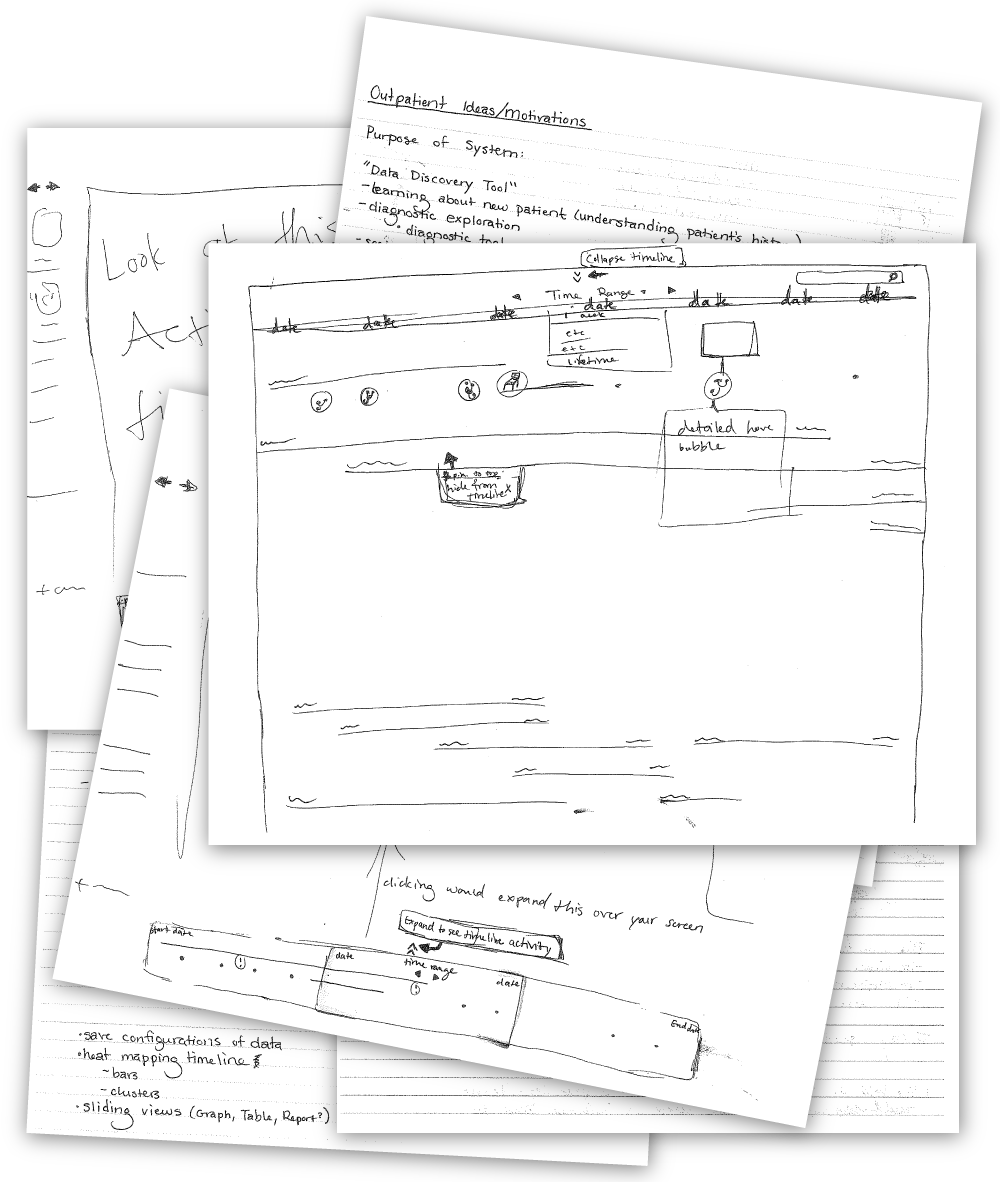 Outpatient Ideas/Motivations
Purpose of System:
"Data Discovery Tool"
-learning about new patient (understanding patient's
-diagnostic exploration
• diagnostic tool
Look at this
Collapse timeline
Time Range
date
date
date
date
date
date
date
etc
etc
Lifetime
detailed hove
bubble
hide from
timeline X
clicking would expand this over your screen
Expand to see timeline activity
start date
date
time range
date
End date
•save configurations of data
•heat mapping timeline
-bars
-clusters
•sliding views (Graph, Table, Report?)